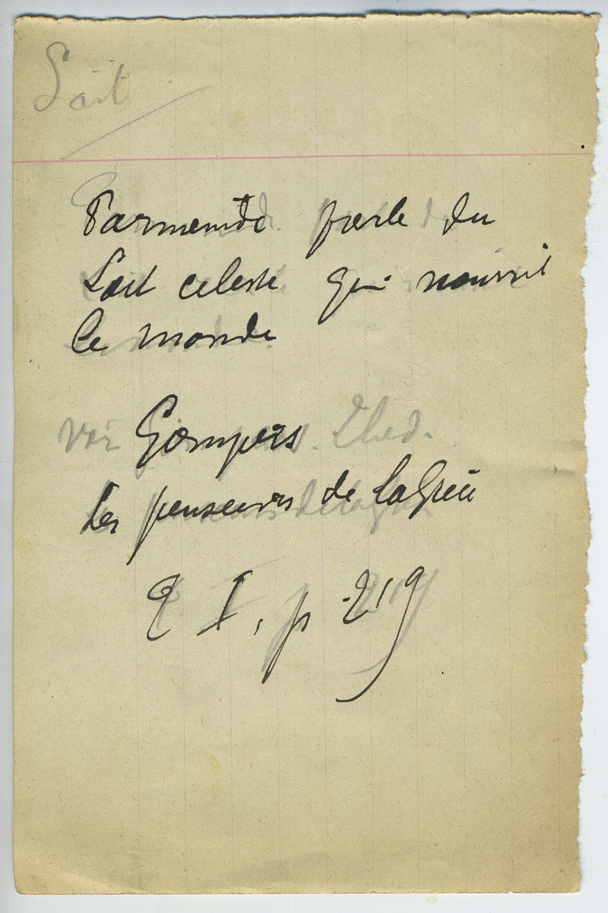 Lait
Parmenide parle du
Lait celeste qui nourrit
le monde
voir Gomperz. Théod.
Les penseurs de la Grèce
T I, p 219